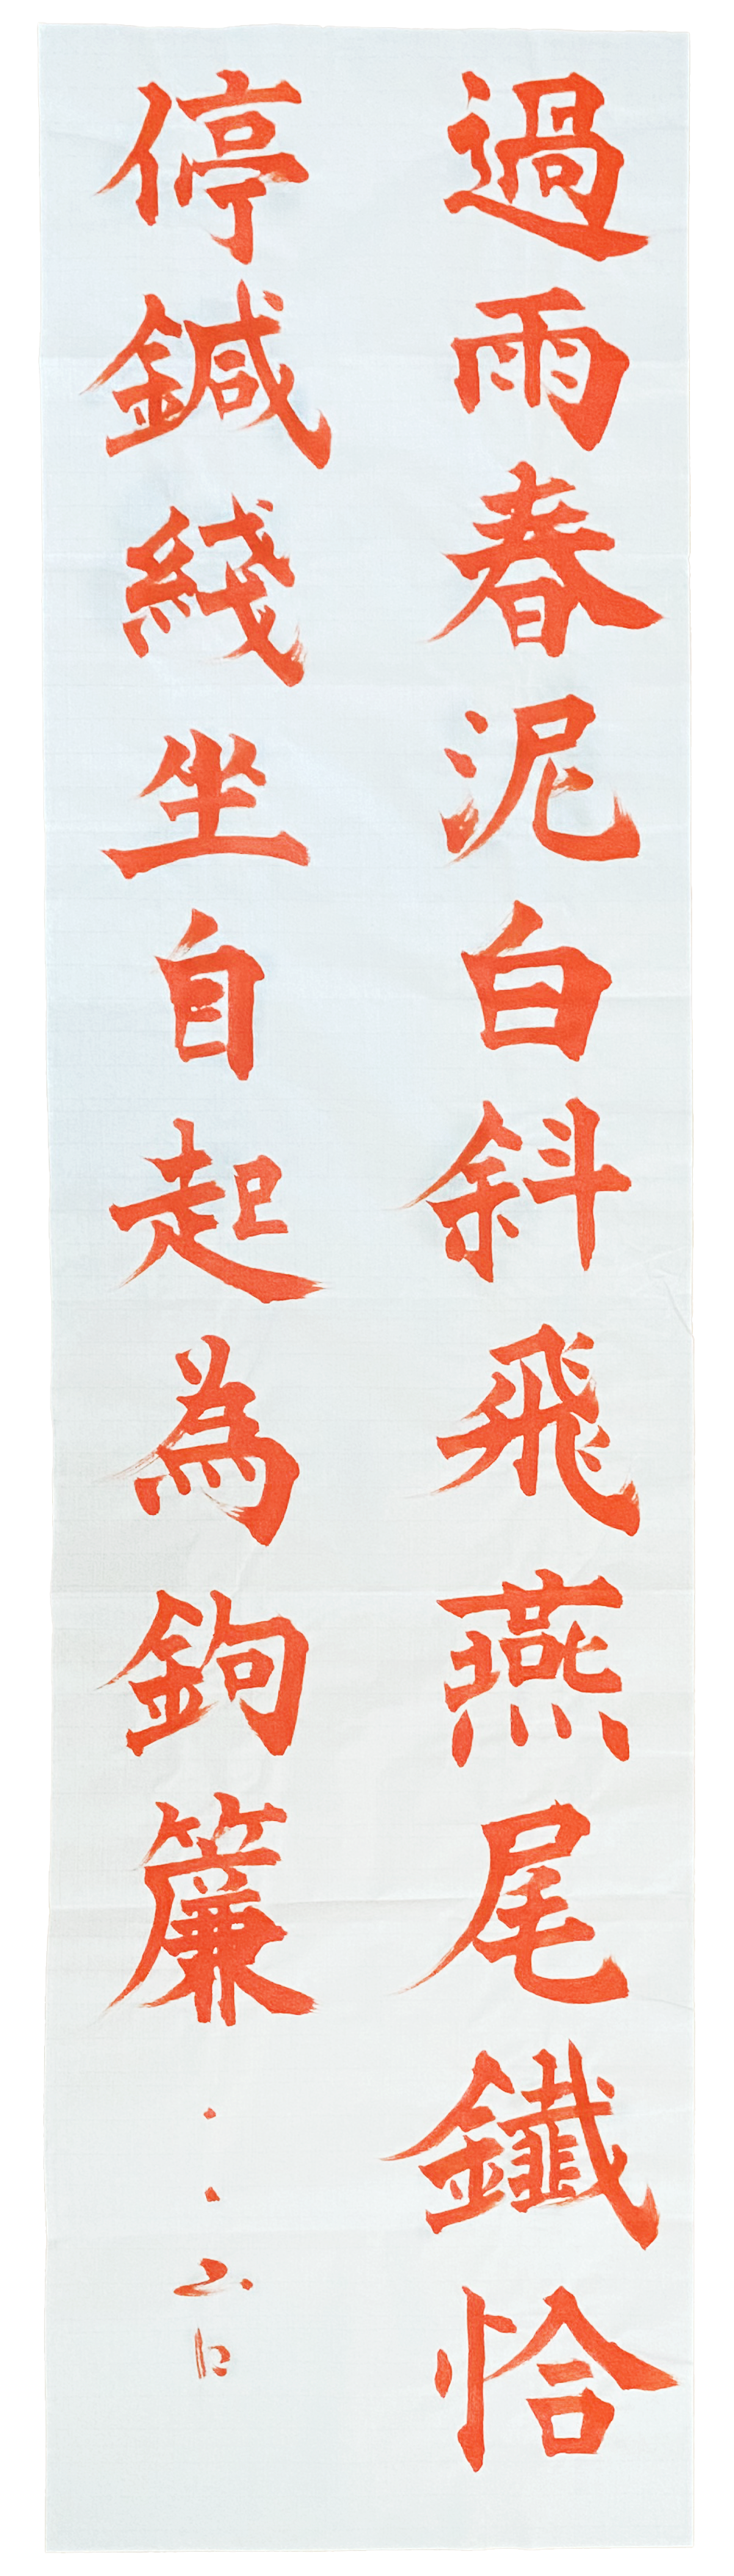 過雨春泥白斜飛燕尾鐵恰
停鍼綫坐自起為鉤簾